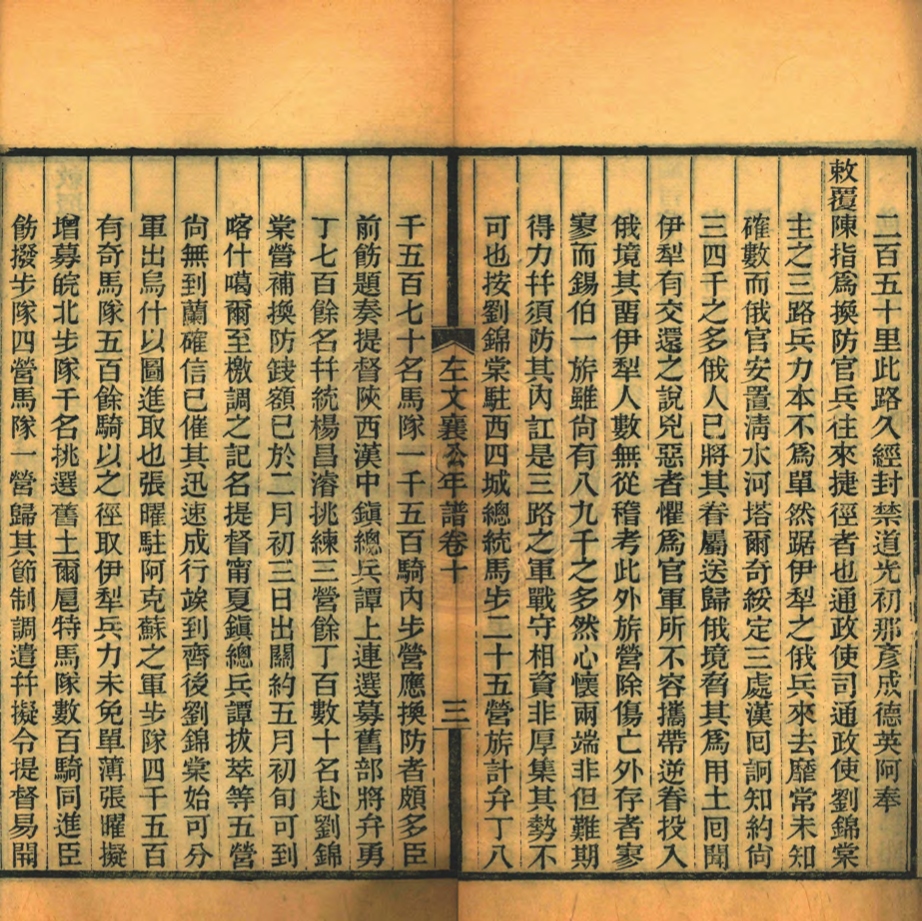 二百五十里此路久經封禁道光初那彥成德英阿奉
敕覆陳指爲換防官兵往來捷徑者也通政使司通政使劉錦棠
主之三路兵力本不爲單然踞伊犁之俄兵來去靡常未知
確數而俄官安置清水河塔爾奇綏定三處漢囘詗知約尙
三四千之多俄人已將其眷屬送歸俄境脅其爲用土囘聞
伊犁有交還之說兇惡者懼爲官軍所不容攜帶逆眷投入
俄境其畱伊犁人數無從稽考此外旂營除傷亡外存者寥
寥而錫伯一旂雖尙有八九千之多然心懷兩端非但難期
得力幷須防其內訌是三路之軍戰守相資非厚集其勢不
可也按劉錦棠駐西四城總統馬步二十五營旂計弁丁八
左文襄公年譜卷十 三
千五百七十名馬隊一千五百騎內步營應換防者頗多臣
前飭題奏提督陝西漢中鎭總兵譚上連選募舊部將弁勇
丁七百餘名幷統楊昌濬挑練三營餘丁百數十名赴劉錦
棠營補換防鈌額已於二月初三日出關約五月初旬可到
喀什噶爾至檄調之記名提督甯夏鎭總兵譚拔萃等五營
尙無到蘭確信已催其迅速成行竢到齊後劉錦棠始可分
軍出烏什以圖進取也張曜駐阿克蘇之軍步隊四千五百
有奇馬隊五百餘騎以之徑取伊犁兵力未免單薄張曜擬
增募皖北步隊千名挑選舊土爾扈特馬隊數百騎同進臣
飭撥步隊四營馬隊一營歸其節制調遣幷擬令提督易開